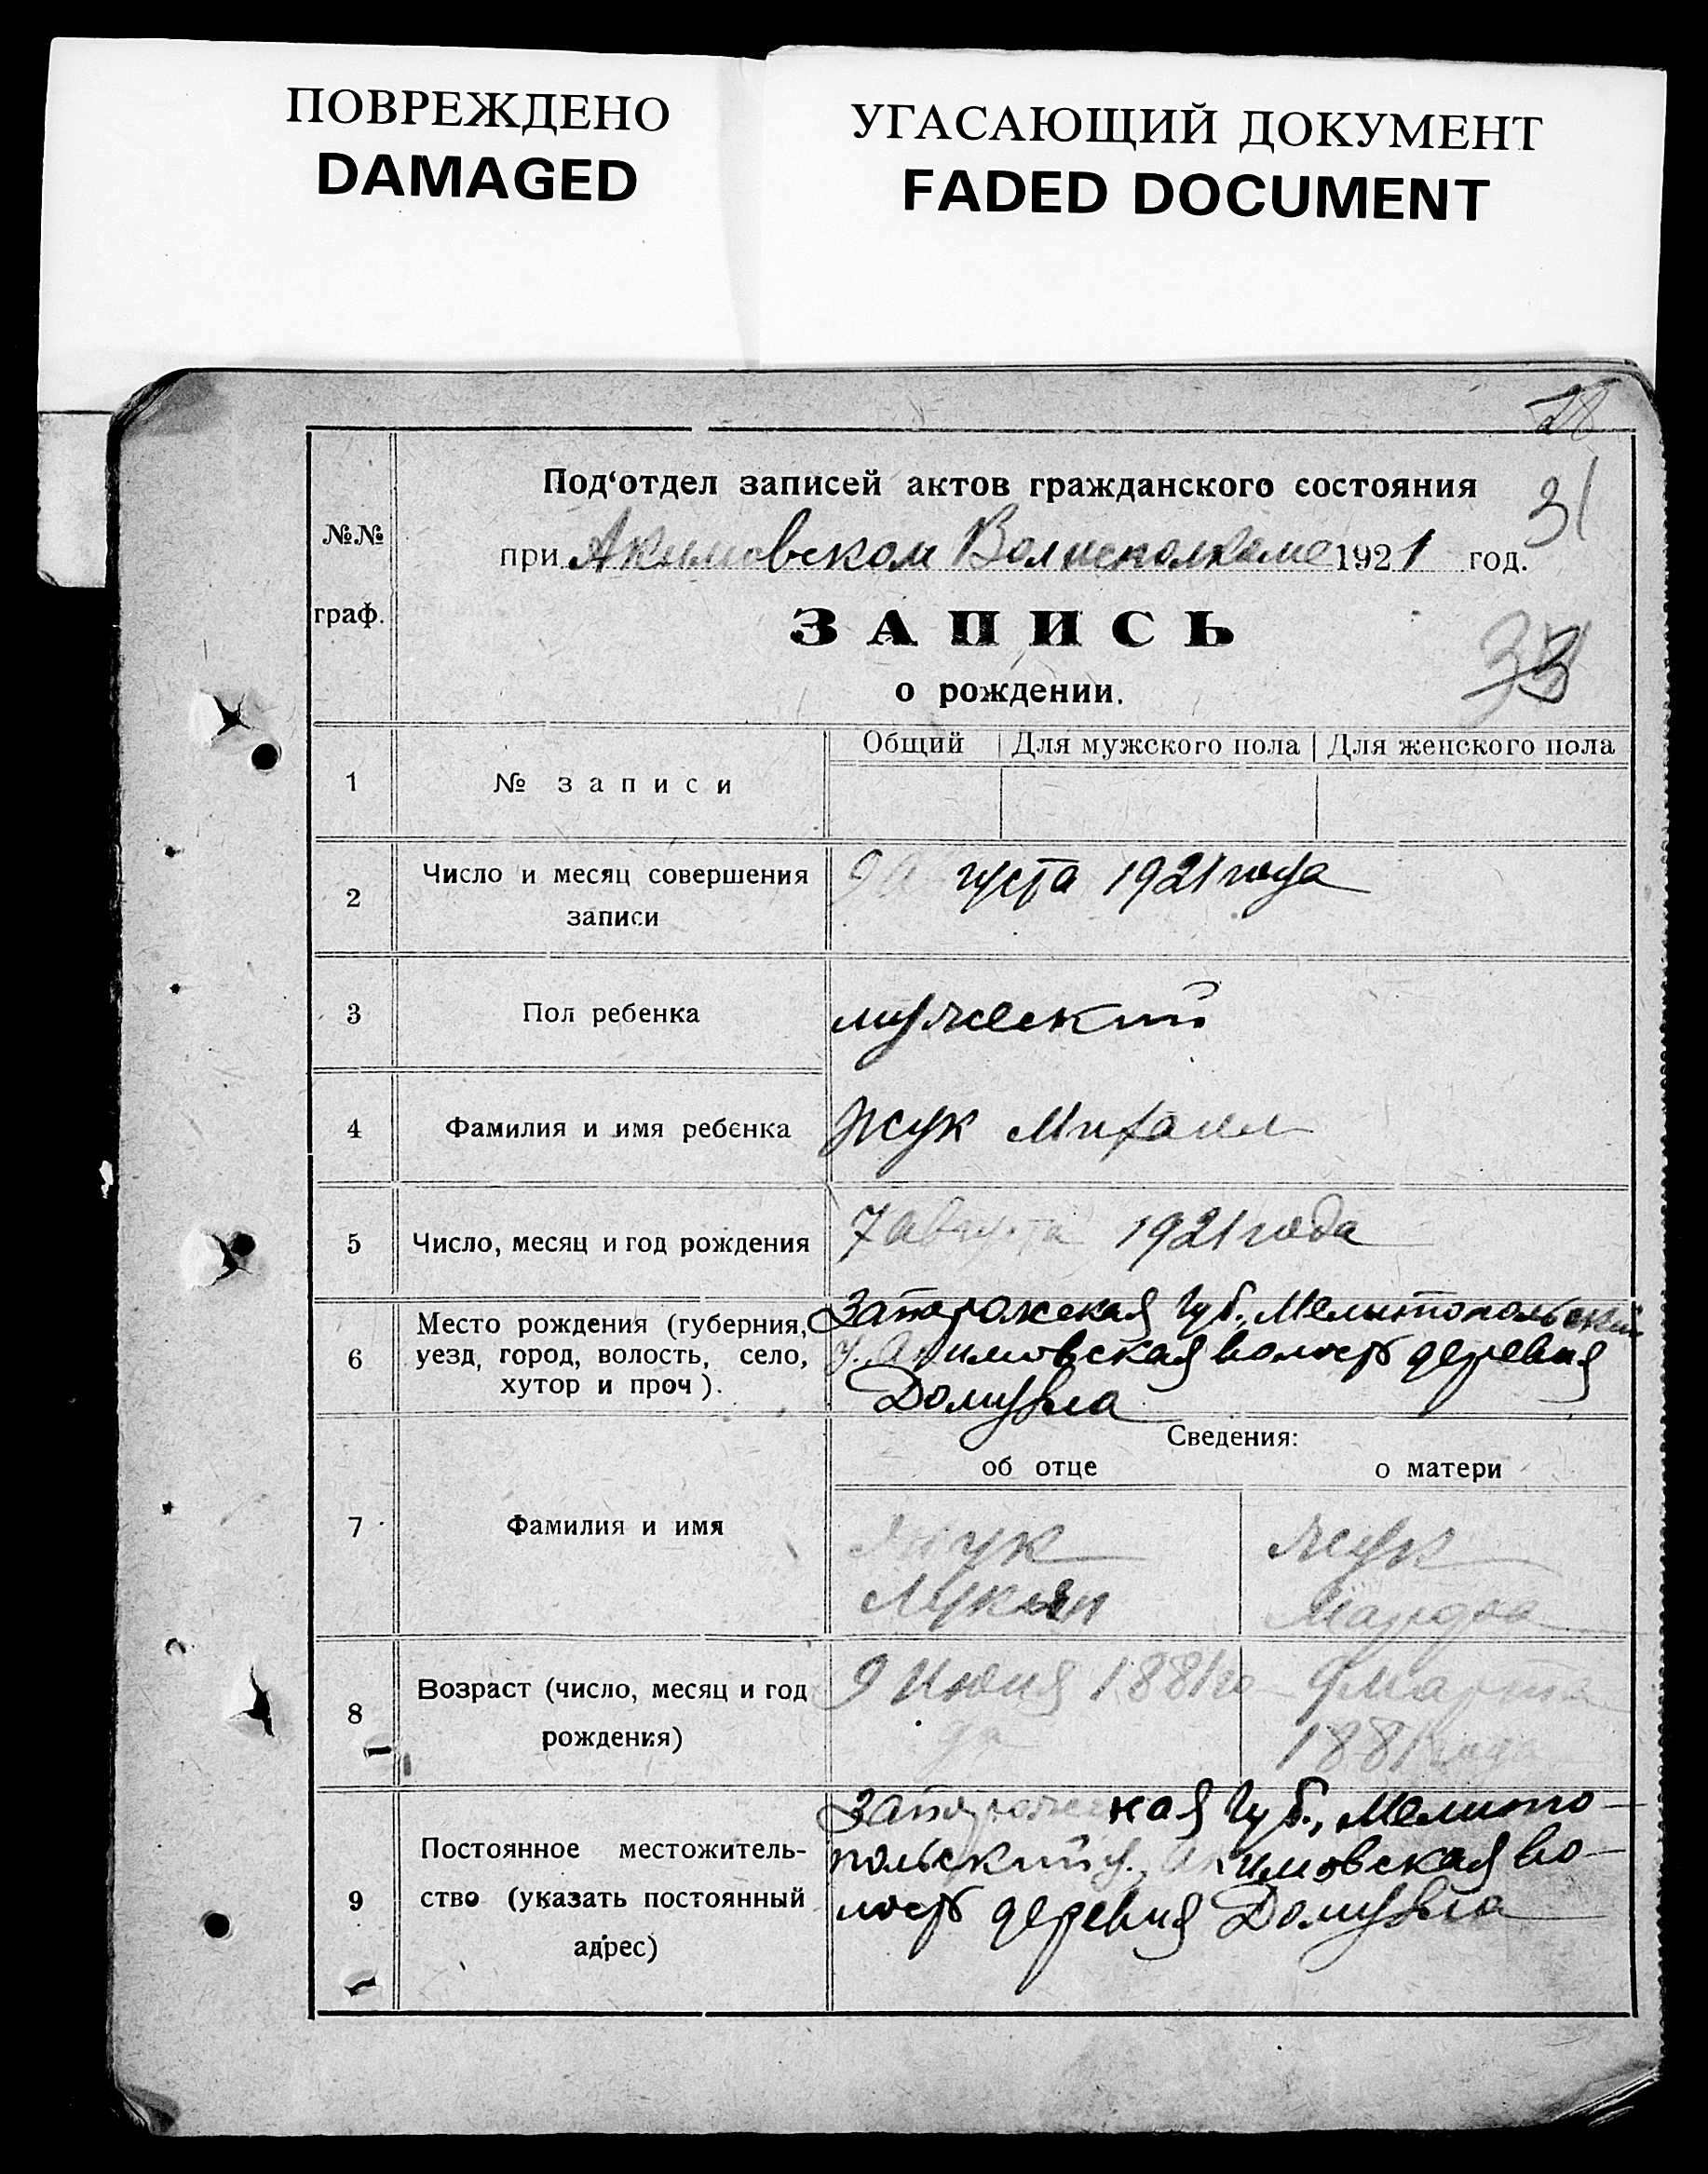 ПОВРЕЖДЕНО
DAMAGED
УГАСАЮЩИЙ ДОКУМЕНТ
FADED DOCUMENT
28
31
№№
граф.
Под‘отдел записей актов гражданского состояния
при Акимовском Волисполкоме 1921 год.
ЗАПИСЬ
о рождении.
33
Общий Для мужского пола Для женского пола
1 № записи
2 Число и месяц совершения
записи
9 августа 1921 года
3 Пол ребенка
мужеский
4 Фамилия и имя ребенка
Жук Михаил
5 Число, месяц и год рождения
7 августа 1921 года
6 Место рождения (губерния,
уезд, город, волость, село,
хутор и проч).
Запорожская Губ., Мелитопольский
у. Акимовская волость деревня
Домузла
Сведения:
об отце о матери
7 Фамилия и имя
Жук
Лукян
Жук
Марфа
8 Возраст (число, месяц и год
рождения)
9 Июня 1881 го-
да
9 Марта
1881 года
9 Постоянное местожитель-
ство (указать постоянный
адрес)
Запорожская Губ., Мелито-
польский у., Акимовская во-
лость деревня Домузла